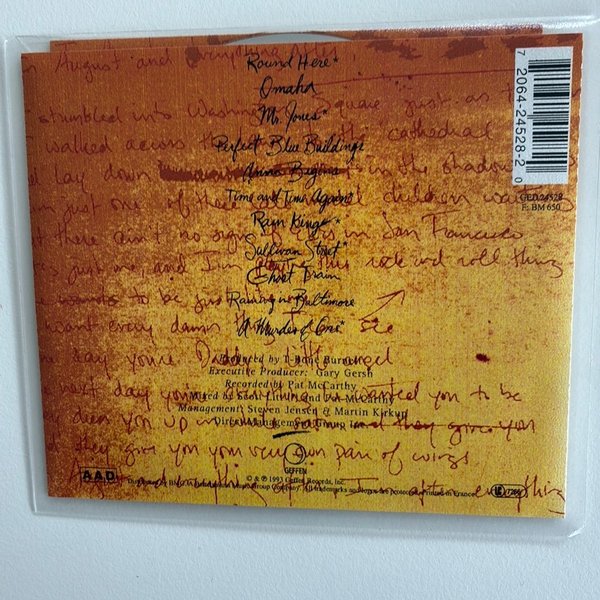 in August and everything after
Round Here*
Omaha
stumbled into Washington Square just as the
Mr. Jones*
walked across the cathedral
Perfect Blue Buildings
lay down in the shadow
Anna Begins
just one of these children waiting
Time and Time Again*
Rain King*
there ain't no sign of in San Francisco
Sullivan Street*
just me, and I'm this rock and roll thing
Ghost Train
to be
Raining in Baltimore
want every damn thing I see
A Murder of One*
day you're Daddy's little angel
next day you're wanted you to be
dress you up in and they give you
they give you your very own pair of wings
August and everything after I'm after everything
Produced by T-Bone Burnett
Executive Producer: Gary Gersh
Recorded by Pat McCarthy
Mixed by Scott Litt* and Pat McCarthy
Management: Steven Jensen & Martin Kirkup
Direct Management Group Inc.
GEFFEN
© & ℗ 1993 Geffen Records, Inc.
All trademarks and logos are protected. Printed in France
AAD
7 2064-24528-2 0
GED 24528
F: BM 650